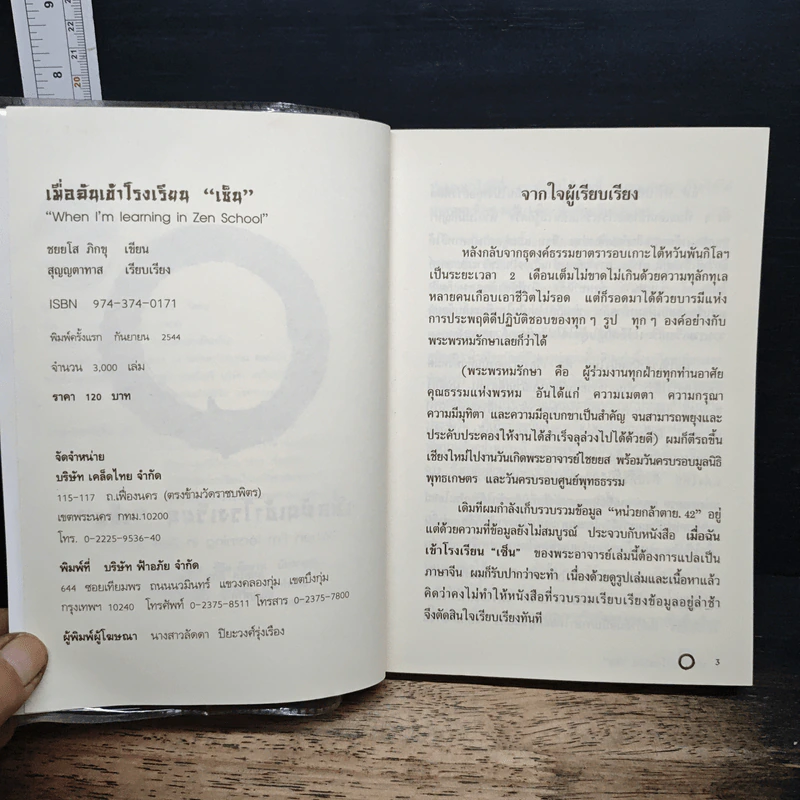 เมื่อฉันเข้าโรงเรียน “เซ็น”
“When I'm learning in Zen School”
ชยยโส ภิกขุ เขียน
สุญญตาทาส เรียบเรียง
ISBN 974-374-0171
พิมพ์ครั้งแรก กันยายน 2544
จำนวน 3,000 เล่ม
ราคา 120 บาท
จัดจำหน่าย
บริษัท เคล็ดไทย จำกัด
115-117 ถ.เฟื่องนคร (ตรงข้ามวัดราชบพิตร)
เขตพระนคร กทม.10200
โทร. 0-2225-9536-40
พิมพ์ที่ บริษัท ฟ้าอภัย จำกัด
644 ซอยเทียมพร ถนนนวมินทร์ แขวงคลองกุ่ม เขตบึงกุ่ม
กรุงเทพฯ 10240 โทรศัพท์ 0-2375-8511 โทรสาร 0-2375-7800
ผู้พิมพ์ผู้โฆษณา นางสาวลัดดา ปิยะวงศ์รุ่งเรือง
จากใจผู้เรียบเรียง
หลังกลับจากธุดงค์ธรรมยาตรารอบเกาะไต้หวันพันกิโลฯ
เป็นระยะเวลา 2 เดือนเต็มไม่ขาดไม่เกินด้วยความทุลักทุเล
หลายคนเกือบเอาชีวิตไม่รอด แต่ก็รอดมาได้ด้วยบารมีแห่ง
การประพฤติดีปฏิบัติชอบของทุก ๆ รูป ทุก ๆ องค์อย่างกับ
พระพรหมรักษาเลยก็ว่าได้
(พระพรหมรักษา คือ ผู้ร่วมงานทุกฝ่ายทุกท่านอาศัย
คุณธรรมแห่งพรหม อันได้แก่ ความเมตตา ความกรุณา
ความมีมุทิตา และความมีอุเบกขาเป็นสำคัญ จนสามารถพยุงและ
ประคับประคองให้งานได้สำเร็จลุล่วงไปได้ด้วยดี) ผมก็ตีรถขึ้น
เชียงใหม่ไปงานวันเกิดพระอาจารย์ไชยยส พร้อมวันครบรอบมูลนิธิ
พุทธเกษตร และวันครบรอบศูนย์พุทธธรรม
เดิมทีผมกำลังเก็บรวบรวมข้อมูล “หน่วยกล้าตาย. 42” อยู่
แต่ด้วยความที่ข้อมูลยังไม่สมบูรณ์ ประจวบกับหนังสือ เมื่อฉัน
เข้าโรงเรียน “เซ็น” ของพระอาจารย์เล่มนี้ต้องการแปลเป็น
ภาษาจีน ผมก็รับปากว่าจะทำ เนื่องด้วยดูรูปเล่มและเนื้อหาแล้ว
คิดว่าคงไม่ทำให้หนังสือที่รวบรวมเรียบเรียงข้อมูลอยู่ล่าช้า
จึงตัดสินใจเรียบเรียงทันที
3
9
22
21
8
20